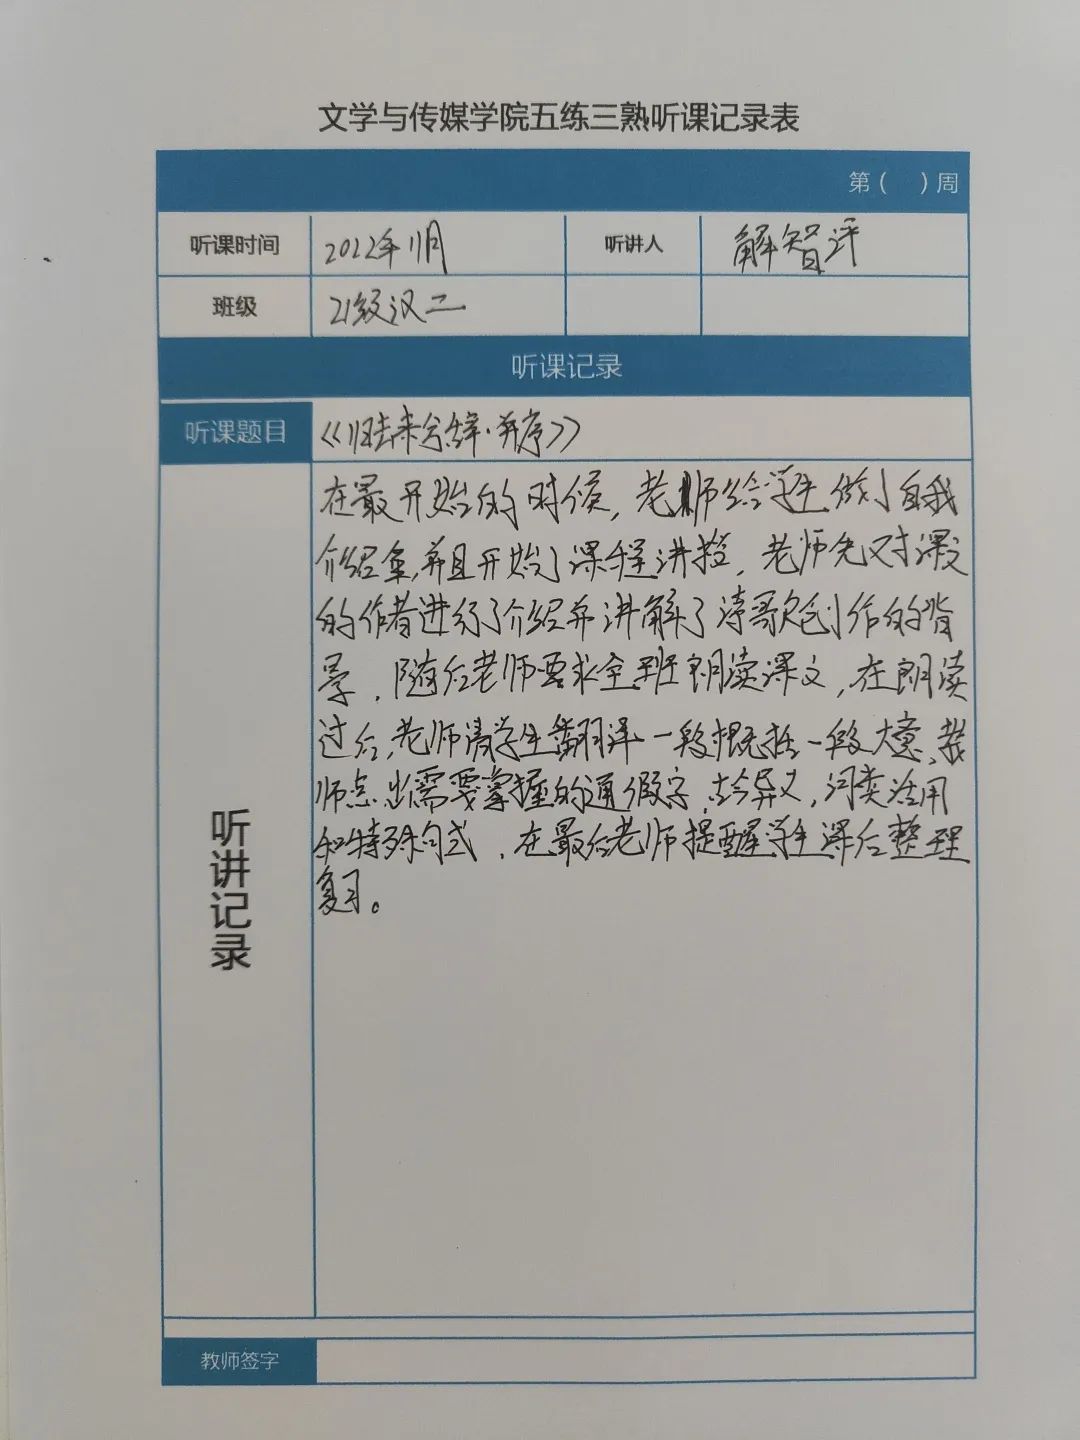 文学与传媒学院五练三熟听课记录表
第（ ）周
听课时间 2022年11月 听讲人 解智评
班级 21级汉二
听课记录
听课题目 《归去来兮辞·并序》
听讲记录
在最开始的时候，老师给学生做了自我
介绍,并且开始了课程讲授，老师先对课文
的作者进行了介绍并讲解了诗歌创作的背
景，随后老师要求全班朗读课文，在朗读
过后,老师请学生翻译一段概括一段大意,教
师点出需要掌握的通假字，古今异义，词类活用
和特殊句式，在最后老师提醒学生课后整理
复习。
教师签字